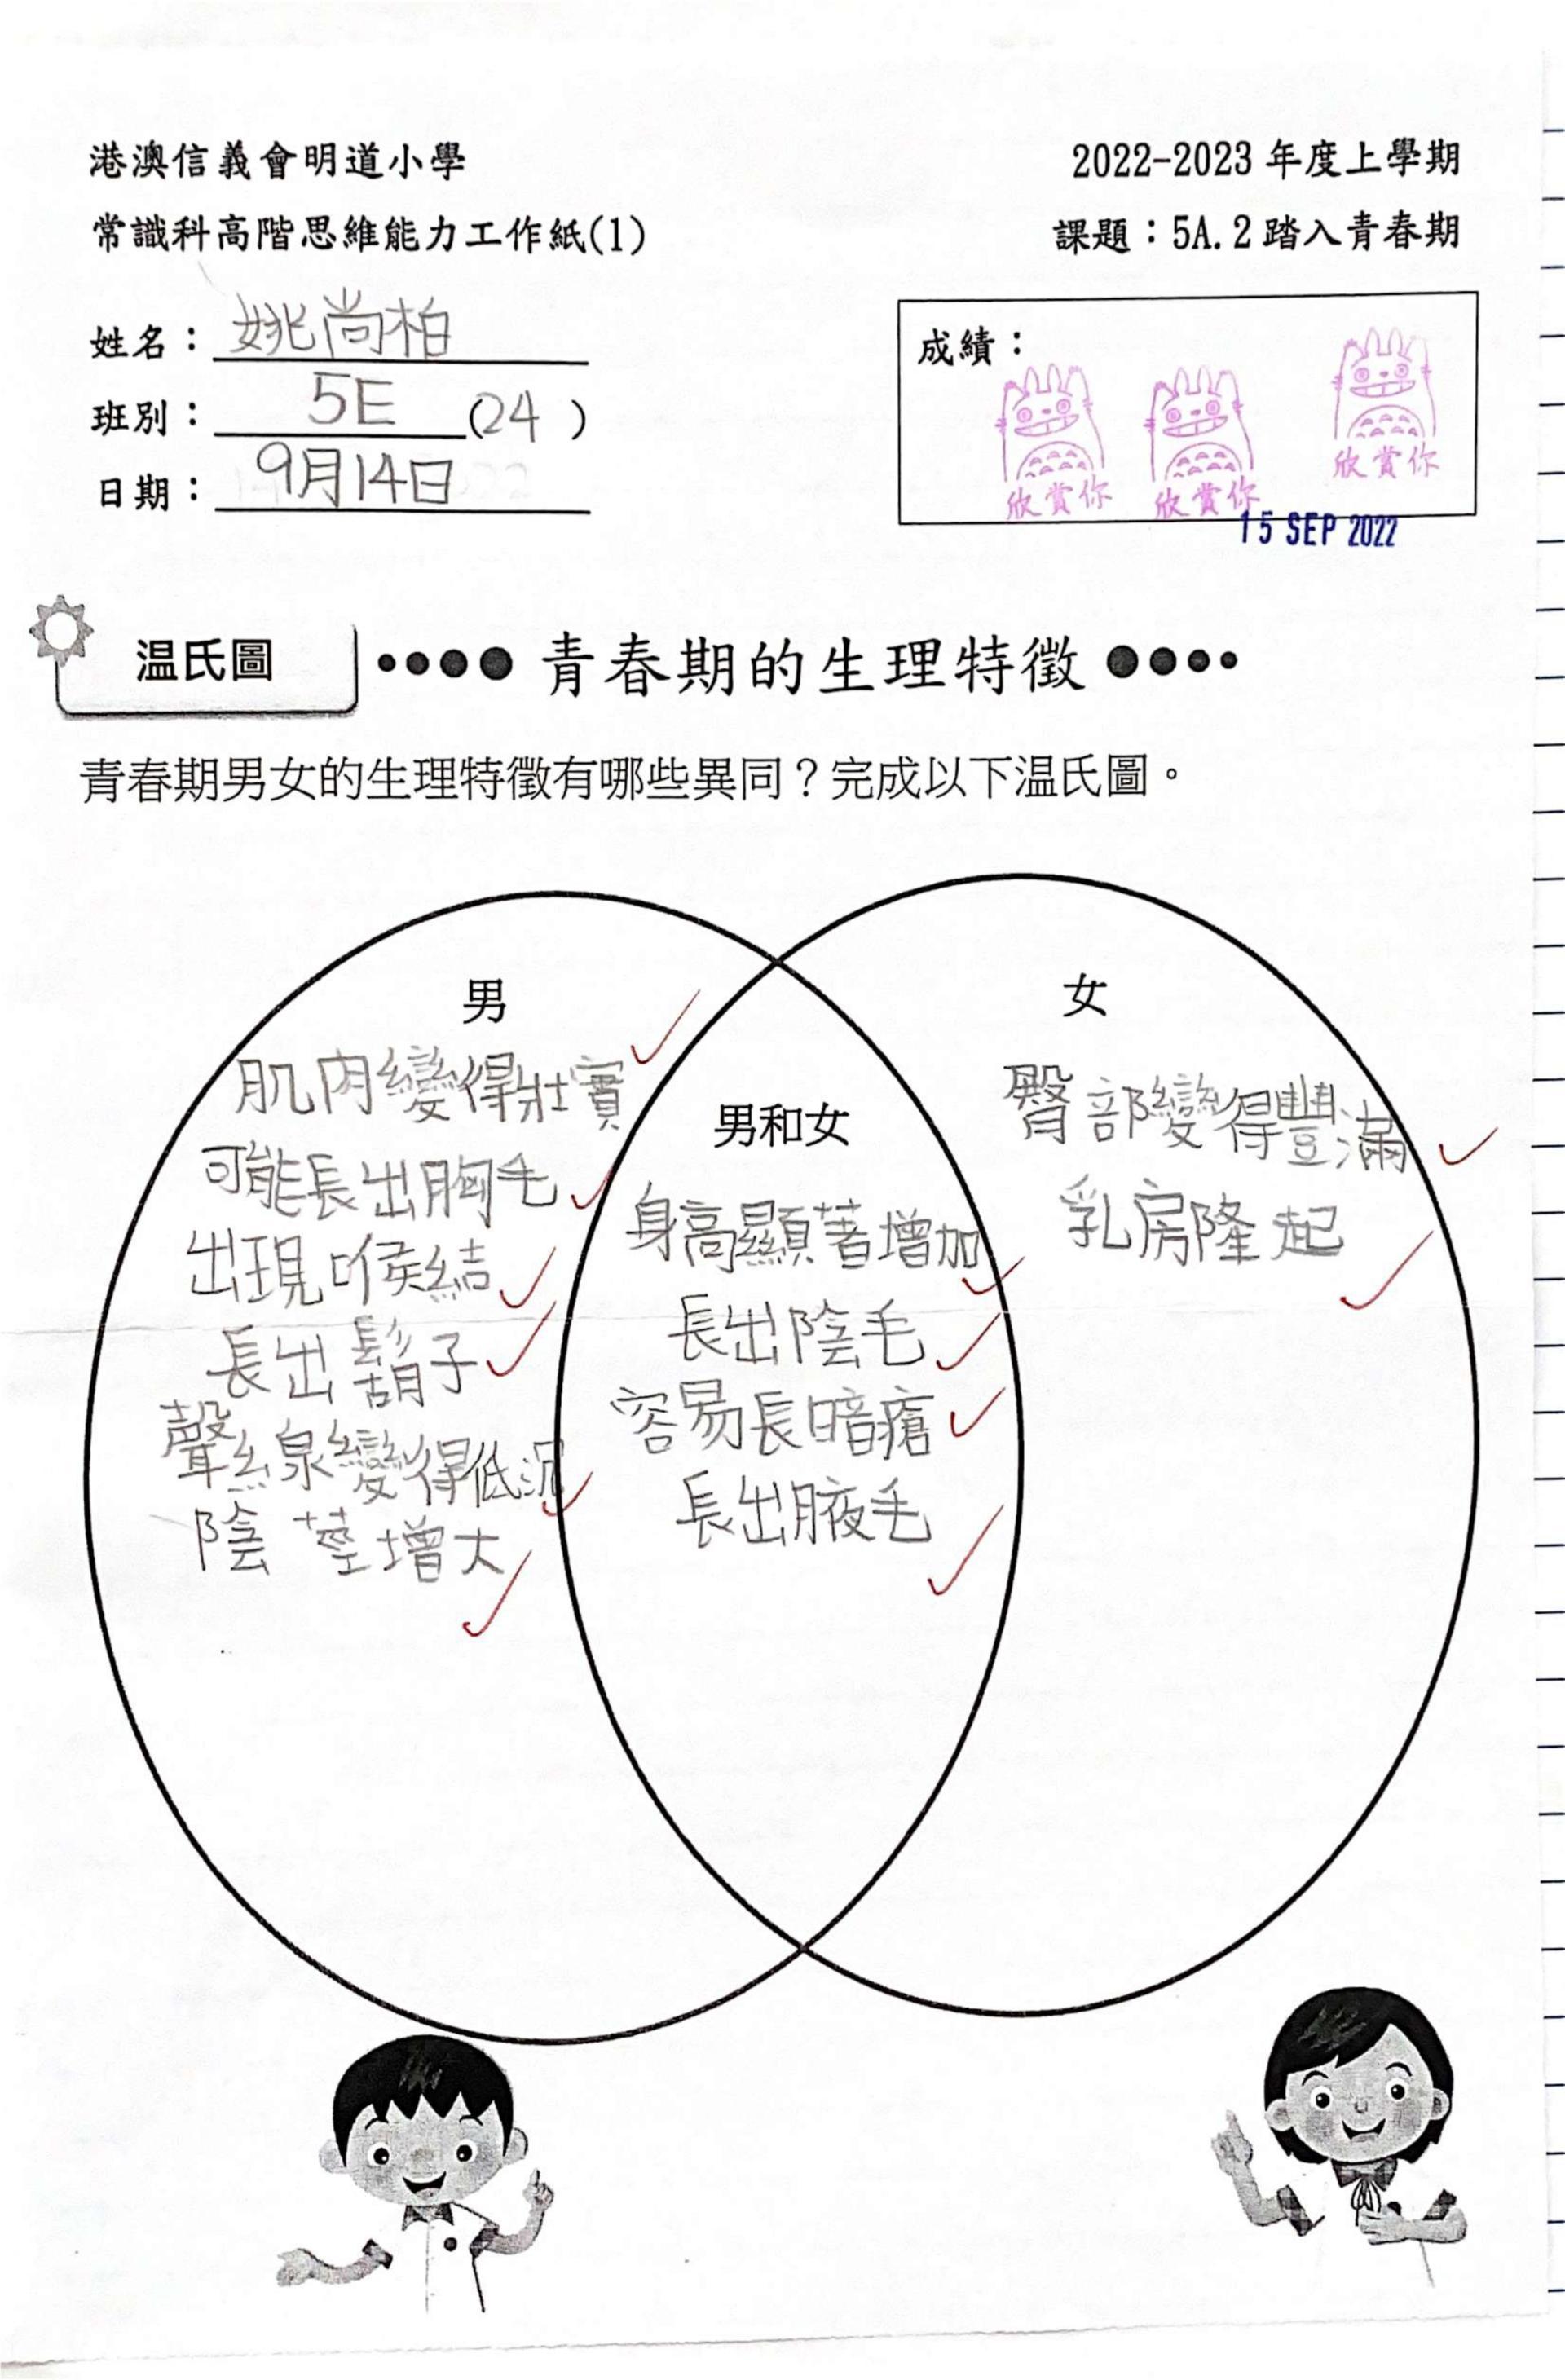 港澳信義會明道小學
2022-2023 年度上學期
常識科高階思維能力工作紙(1)
課題：5A.2 踏入青春期
姓名：姚尚柏
班別：5E (24)
日期：9月14日
成績：
欣賞你
欣賞你
欣賞你
15 SEP 2022
温氏圖
青春期的生理特徵
青春期男女的生理特徵有哪些異同？完成以下温氏圖。
男
肌肉變得壯實
可能長出胸毛
出現喉結
長出鬍子
聲線變得低沉
陰莖增大
男和女
身高顯著增加
長出陰毛
容易長暗瘡
長出腋毛
女
臀部變得豐滿
乳房隆起